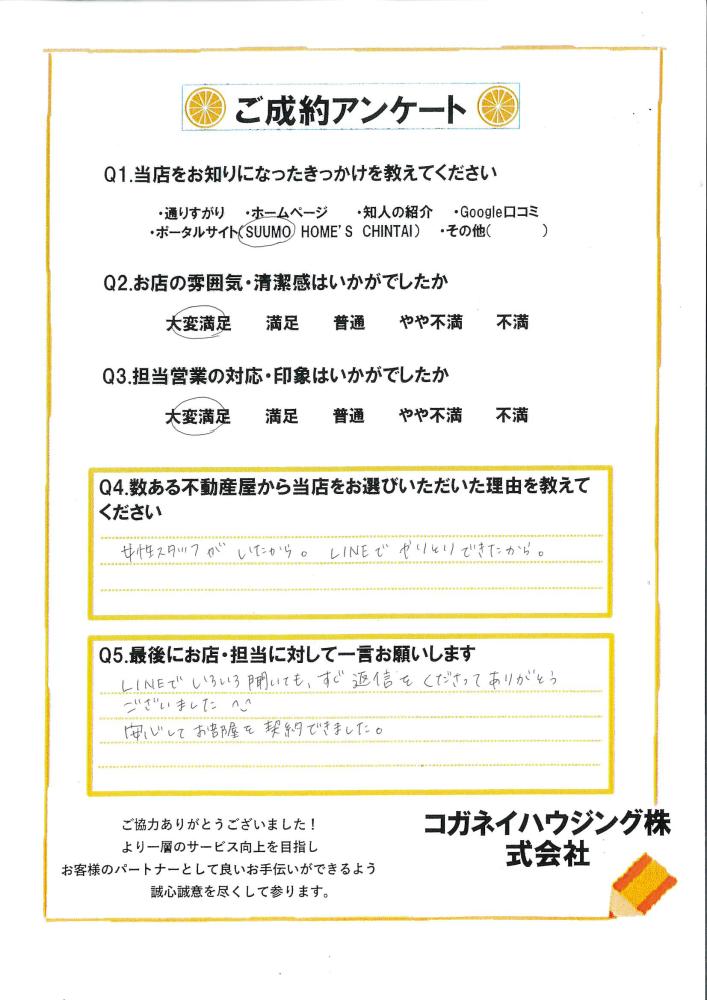 ご成約アンケート
Q1.当店をお知りになったきっかけを教えてください
・通りすがり ・ホームページ ・知人の紹介 ・Google口コミ
・ポータルサイト(SUUMO HOME'S CHINTAI) ・その他( )
Q2.お店の雰囲気・清潔感はいかがでしたか
大変満足 満足 普通 やや不満 不満
Q3.担当営業の対応・印象はいかがでしたか
大変満足 満足 普通 やや不満 不満
Q4.数ある不動産屋から当店をお選びいただいた理由を教えて
ください
女性スタッフが いたから。 LINEで やりとりできたから。
Q5.最後にお店・担当に対して一言お願いします
LINEで いろいろ聞いても、すぐ 返信を くださって ありがとう
ございました ^_^
安心して お部屋を 契約できました。
ご協力ありがとうございました!
より一層のサービス向上を目指し
お客様のパートナーとして良いお手伝いができるよう
誠心誠意を尽くして参ります。
コガネイハウジング株
式会社